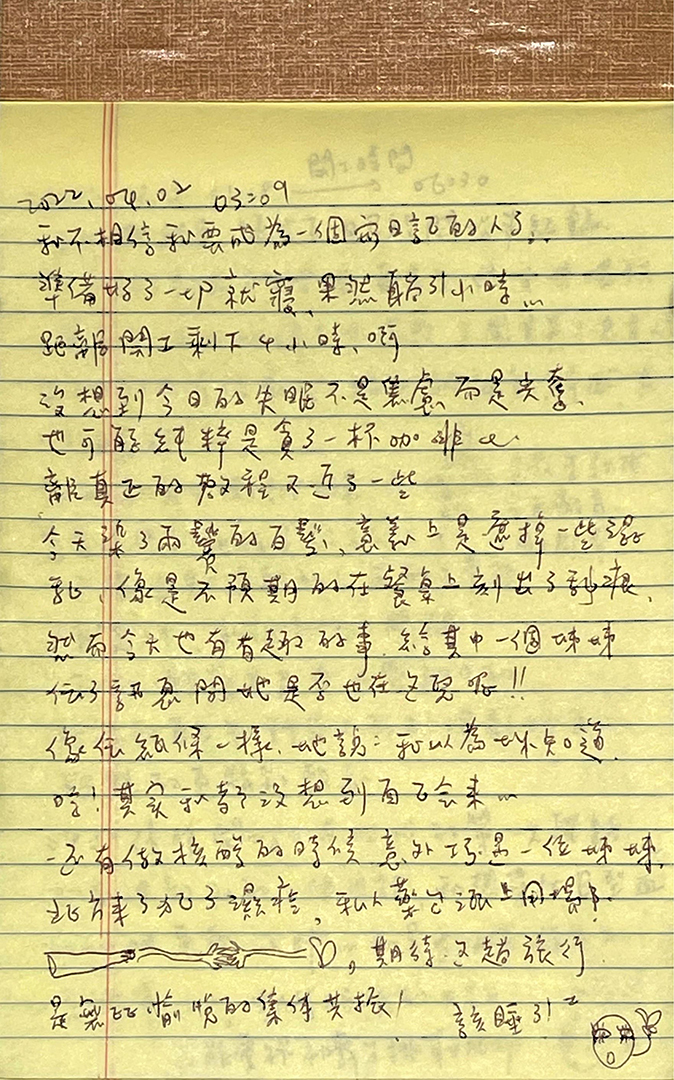 2022.04.02 03:09
我不相信我要成為一個寫日記的人了..
準備好了一切就寢、果然 小時...
距離開工剩下4小時、啊
沒想到今日的失眠不是焦慮、而是亢奮、
也可能純粹是貪了一杯咖啡
離真正的 程又近了一些
今天 了兩 的百 、意義上是遮掉一些
亂、像是不預期的在餐桌上刻出了 痕、
然而今天也有有趣的事、給其中一個姊姊
傳了訊息問她是否也在這兒呢!!
像傳紙條一樣、她說:我以為妳知道
哈!其实我都沒想到自己会來...
還有做核酸的時候意外巧遇一位姊姊、
此 來了 了 , 人藥 派上用場了.
,期待這趟旅行
是無比愉悅的集体共振!
該睡了!